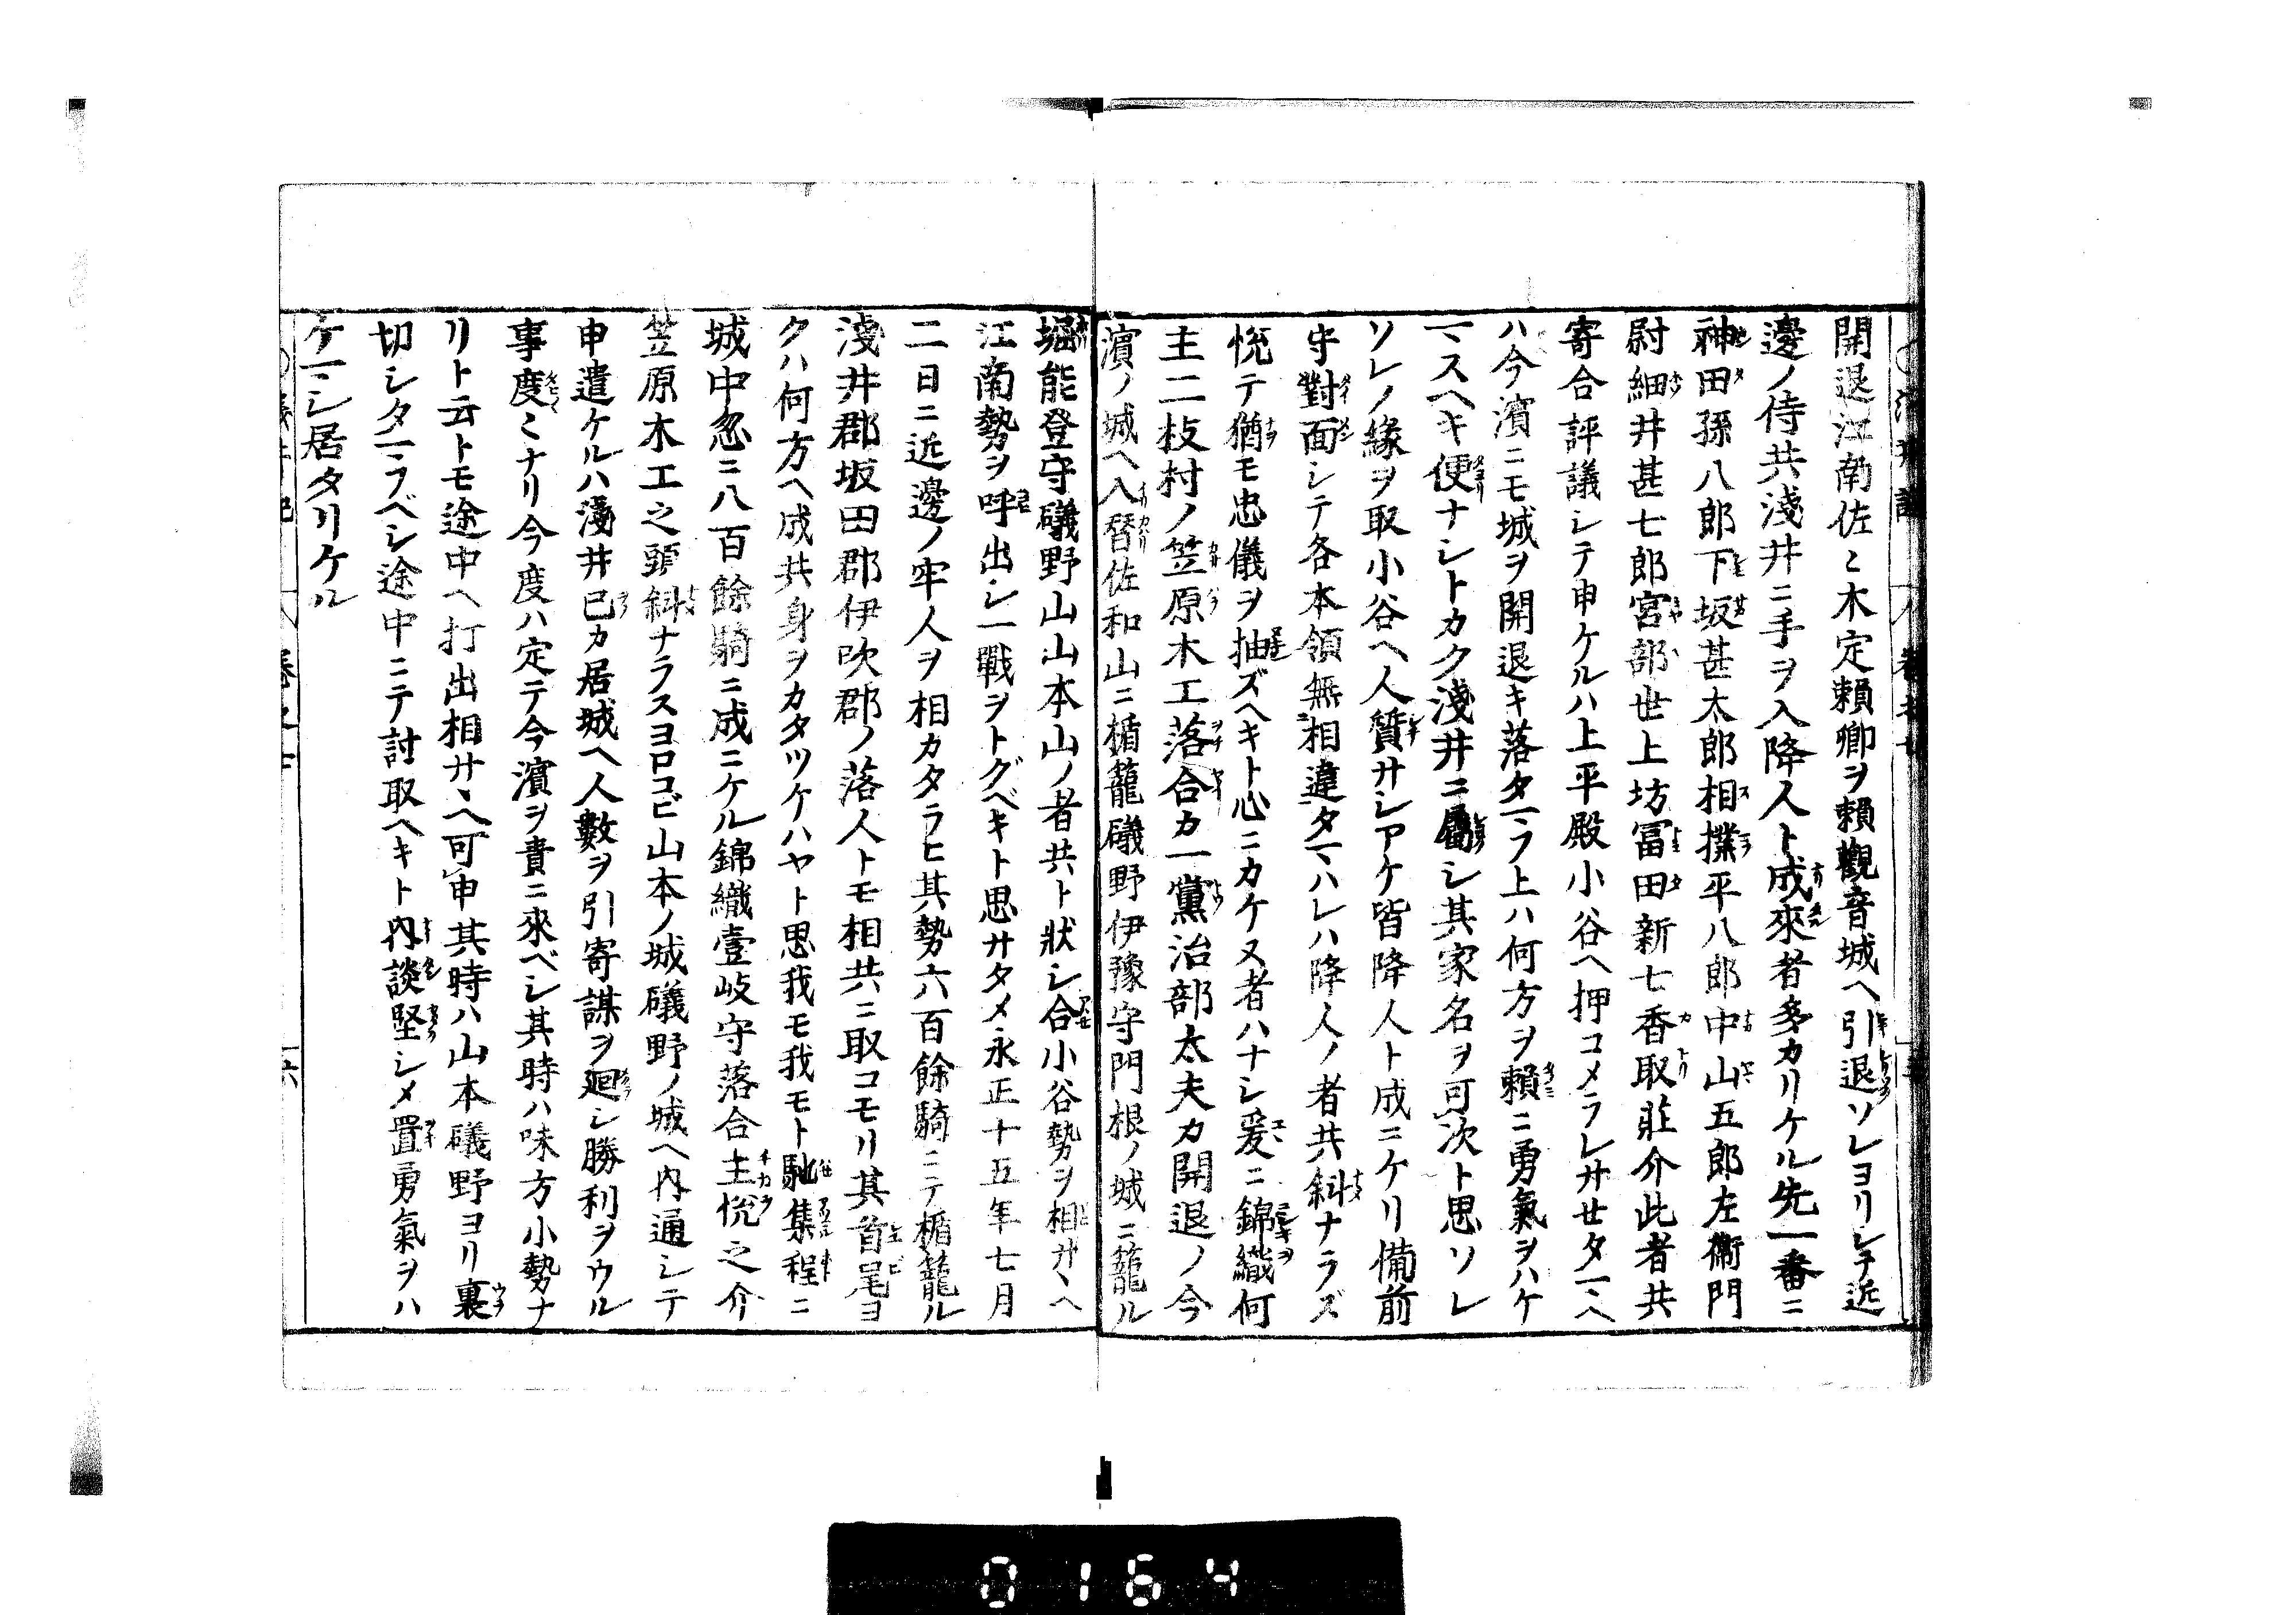 開退江南佐〻木定頼卿ヲ頼觀音城ヘ引退ソレヨリシテ近
邊ノ侍共淺井ニ手ヲ入降人ト成來者多カリケル先一番ニ
神田孫八郎下坂甚太郎相撲平八郎中山五郎左衞門
尉細井甚七郎宮部世上坊冨田新七香取莊介此者共
寄合評議シテ申ケルハ上平殿小谷ヘ押コメラレサセタマヘ
ハ今濱ニモ城ヲ開退キ落タマフ上ハ何方ヲ頼ニ勇氣ヲハケ
マスヘキ便ナシトカク淺井ニ屬シ其家名ヲ可次ト思ソレ
ソレノ縁ヲ取小谷ヘ人質サシアケ皆降人ト成ニケリ備前
守對面シテ各本領無相違タマハレハ降人ノ者共斜ナラズ
悦テ猶モ忠儀ヲ抽ズヘキト心ニカケヌ者ハナシ爰ニ錦織何
主二枝村ノ笠原木工落合カ一黨治部太夫カ開退ノ今
濱ノ城ヘ入替佐和山ニ楯籠礒野伊豫守門根ノ城ニ籠ル
堀能登守礒野山山本山ノ者共ト狀シ合小谷勢ヲ相サヽヘ
江南勢ヲ呼出シ一戰ヲトグベキト思サタメ永正十五年七月
二日ニ近邊ノ牢人ヲ相カタラヒ其勢六百餘騎ニテ楯籠ル
淺井郡坂田郡伊吹郡ノ落人トモ相共ニ取コモリ其首尾ヨ
クハ何方ヘ成共身ヲカタツケハヤト思我モ我モト馳集程ニ
城中忽ニ八百餘騎ニ成ニケル錦織壹岐守落合主悦之介
笠原木工之頭斜ナラスヨロコビ山本ノ城礒野ノ城ヘ内通シテ
申遣ケルハ淺井已カ居城ヘ人數ヲ引寄謀ヲ廻シ勝利ヲウル
事度〻ナリ今度ハ定テ今濱ヲ責ニ來ベシ其時ハ味方小勢ナ
リト云トモ途中ヘ打出相サヽヘ可申其時ハ山本礒野ヨリ裏
切シタマフベシ途中ニテ討取ヘキト内談堅シメ置勇氣ヲハ
ケマシ居タリケル
0164